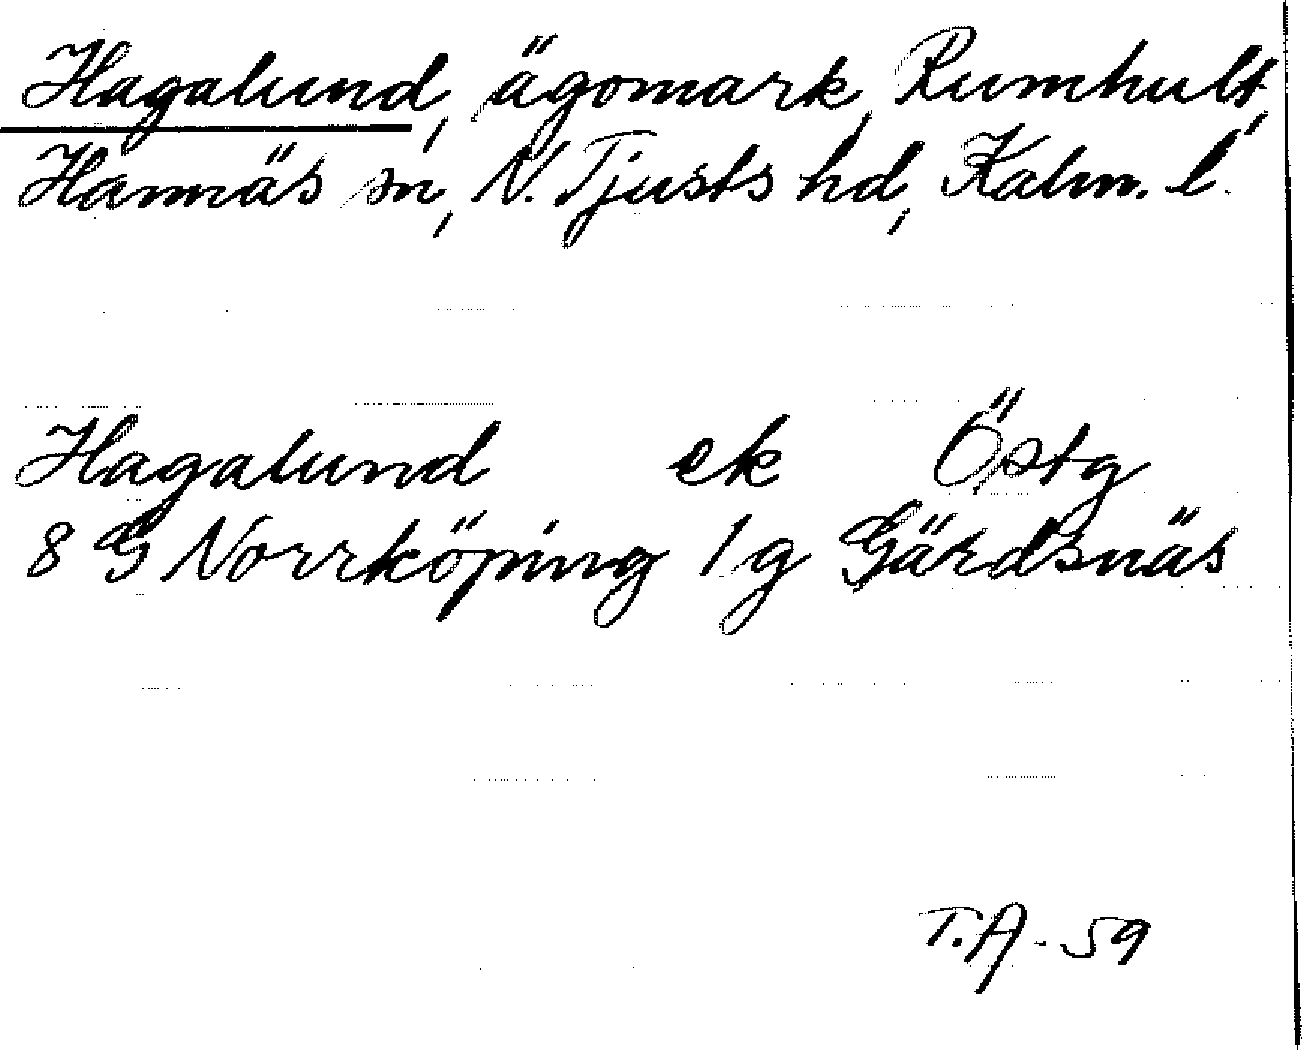 Hagalund, ägomark, Rumhult,
Hannäs sn, N. Tjusts hd, Kalm. l.
Hagalund ek Östg
8 G Norrköping 1 g Gärdsnäs
T.A. 59